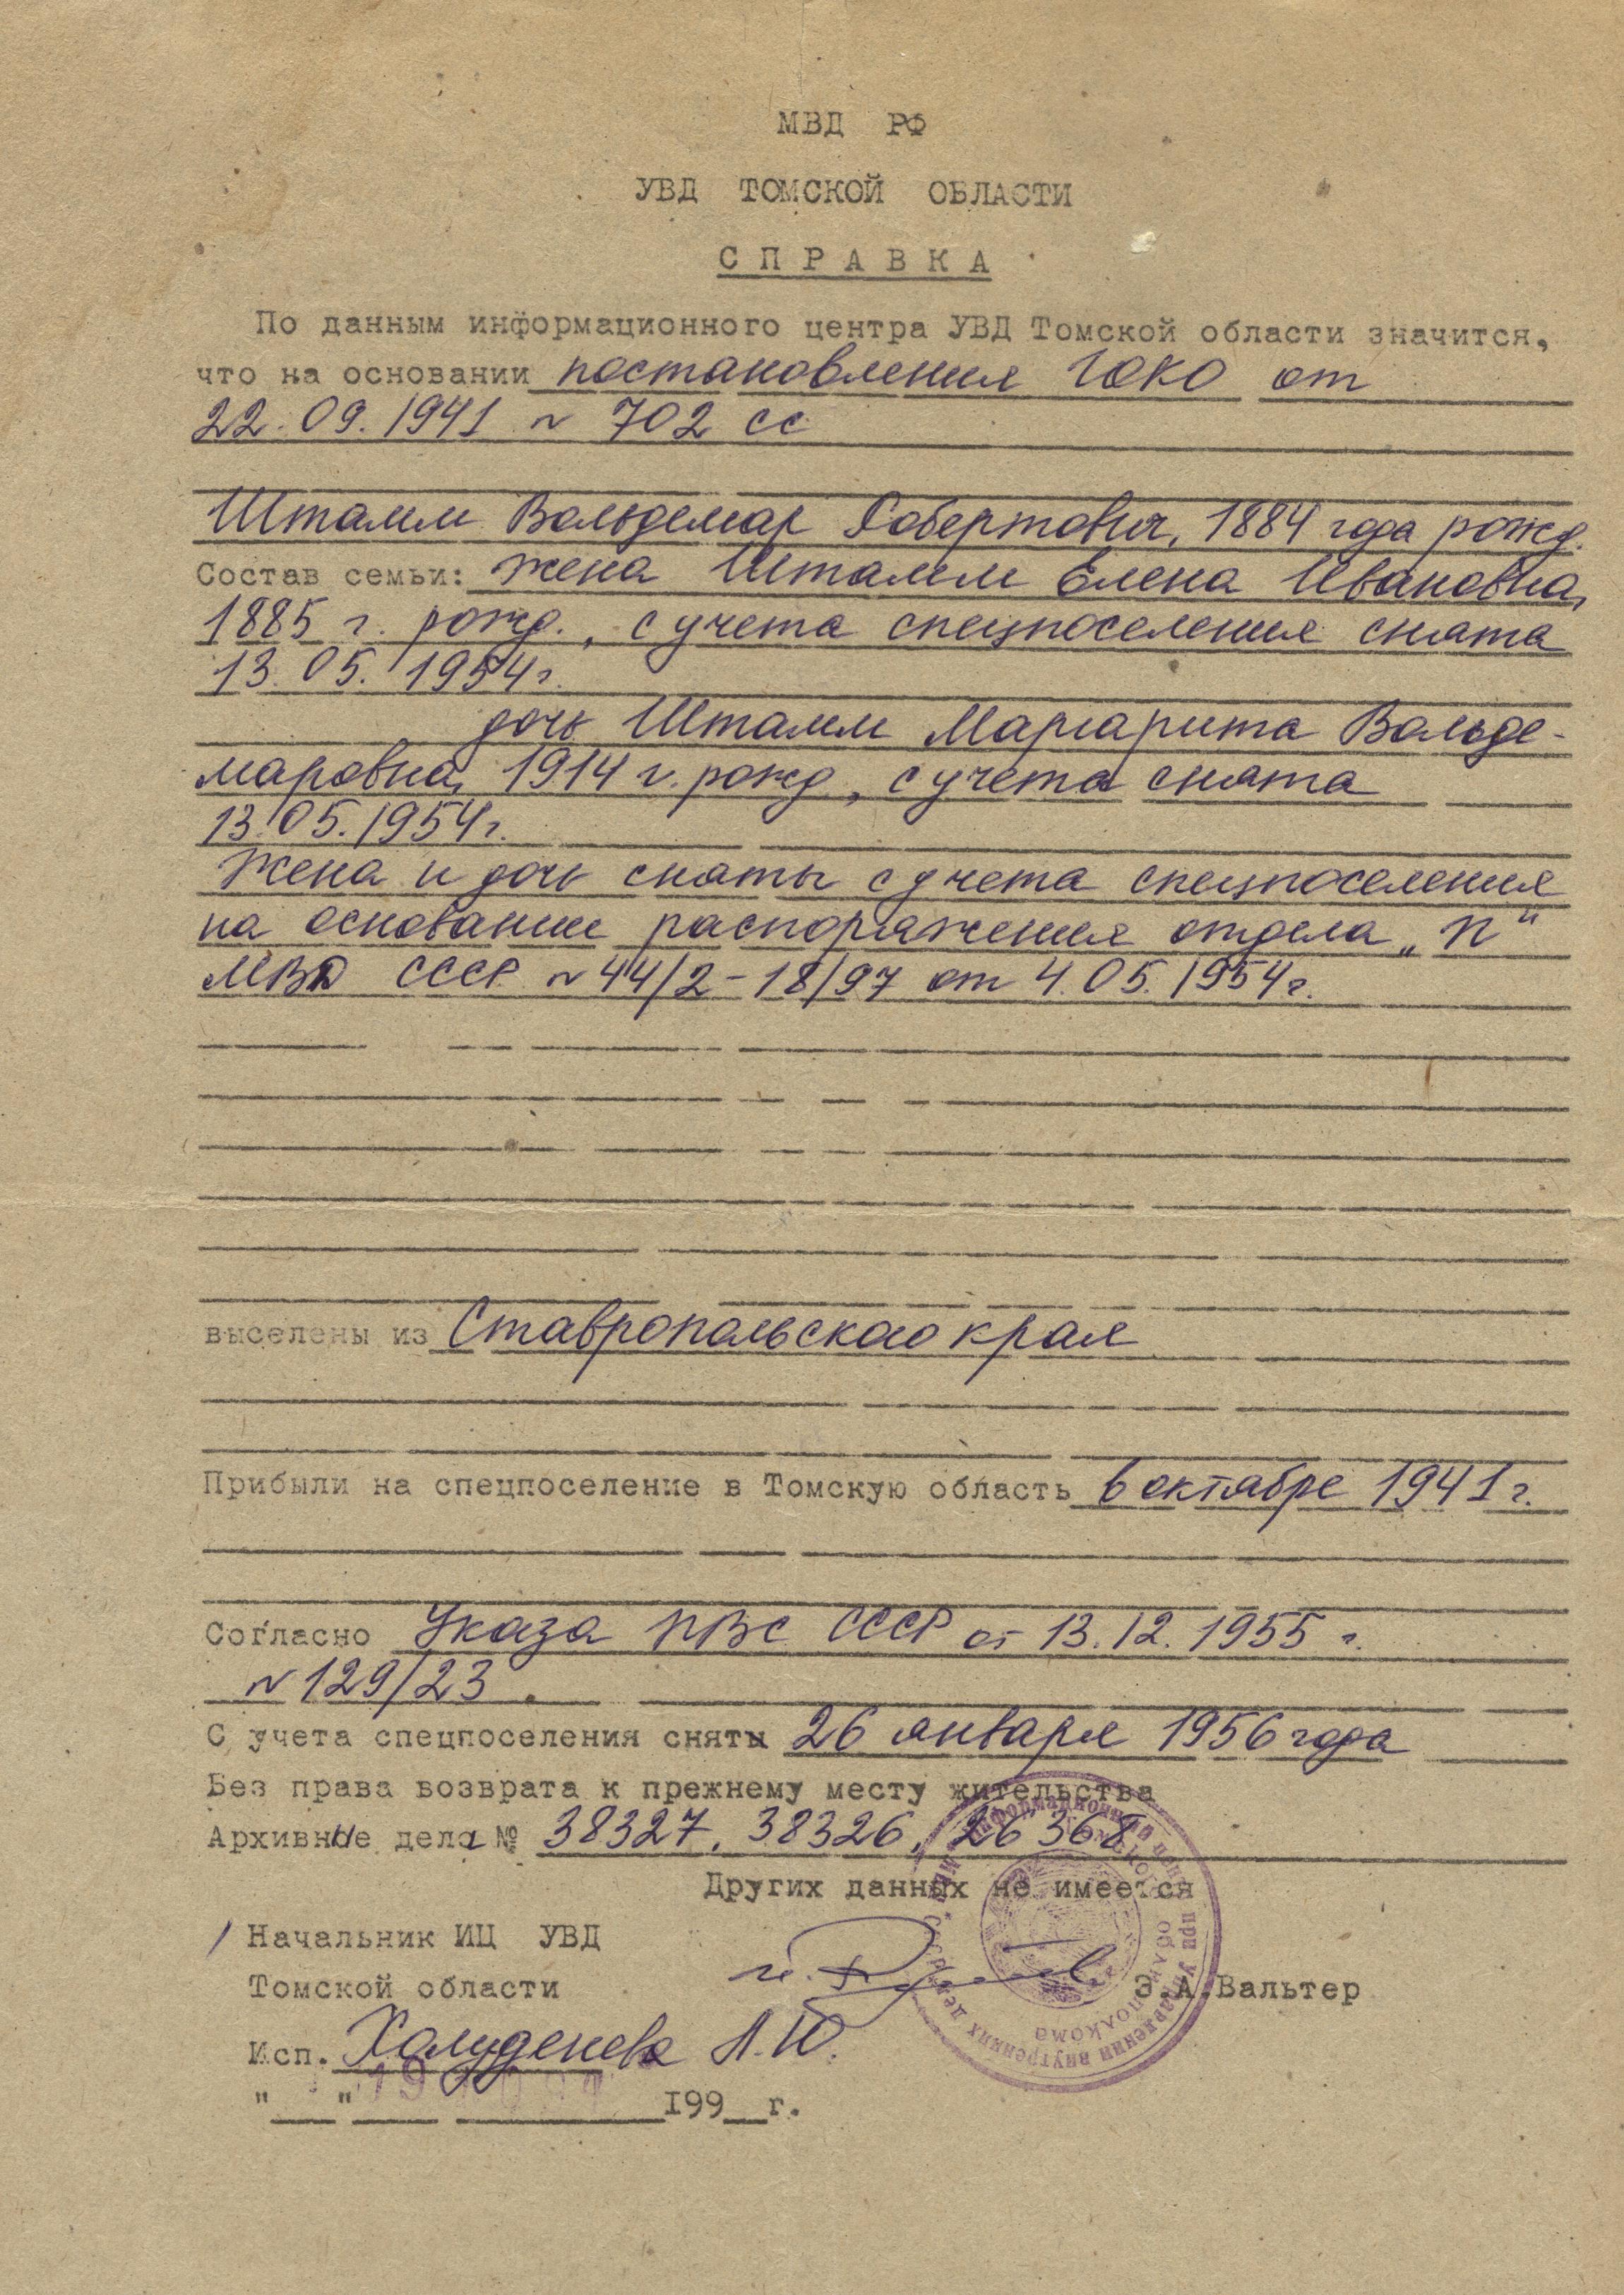 МВД РФ
УВД ТОМСКОЙ ОБЛАСТИ
СПРАВКА
По данным информационного центра УВД Томской области значится,
что на основании постановления ГОКО от
22.09.1941 N 702 сс
Штамм Вольдемар Робертович, 1884 года рожд.
Состав семьи: жена Штамм Елена Ивановна,
1885 г. рожд., с учета спецпоселения снята
13.05.1954 г.
дочь Штамм Маргарита Вольде-
маровна, 1914 г. рожд., с учета снята
13.05.1954 г.
Жена и дочь сняты с учета спецпоселения
на основании распоряжения отдела „П“
МВД СССР N 44/2-18/97 от 4.05.1954 г.
выселены из Ставропольского края
Прибыли на спецпоселение в Томскую область в октябре 1941 г.
Согласно Указа ПВС СССР от 13.12.1955 г.
N 129/23.
С учета спецпоселения сняты 26 января 1956 года
Без права возврата к прежнему месту жительства
Архивные дела № 38327, 38326, 26368
Других данных не имеется
Начальник ИЦ УВД
Томской области Э.А.Вальтер
Исп. А.Ю.
"___"____ ________199__г.